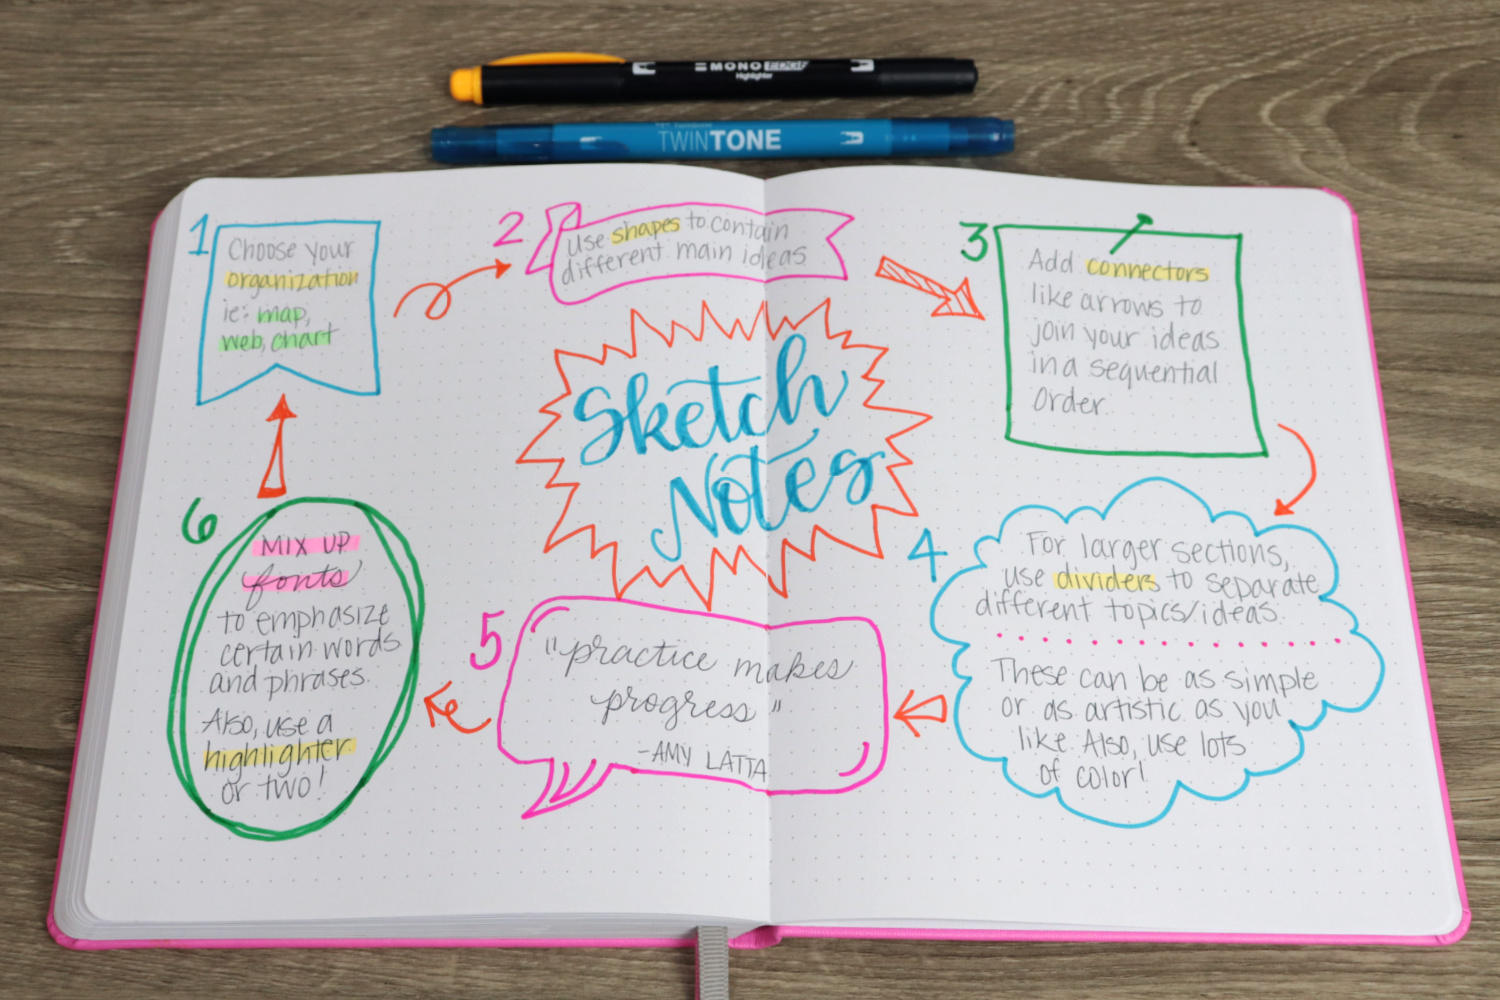 MONO EDGE
Highlighter
TWINTONE
1
Choose your
organization
ie: map,
web, chart
2
Use shapes to contain
different main ideas
3
Add connectors
like arrows to
join your ideas
in a sequential
order.
Sketch
Notes
4
For larger sections,
use dividers to separate
different topics/ideas.
These can be as simple
or as artistic as you
like. Also, use lots
of color!
5
"practice makes
progress"
-AMY LATTA
6
MIX UP
fonts
to emphasize
certain words
and phrases.
Also, use a
highlighter
or two!